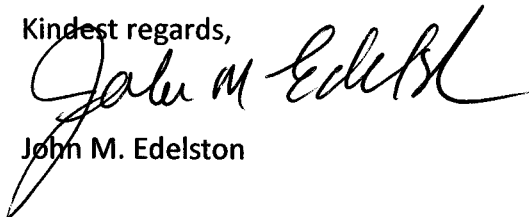 Kindest regards,
John M Edelston
John M. Edelston